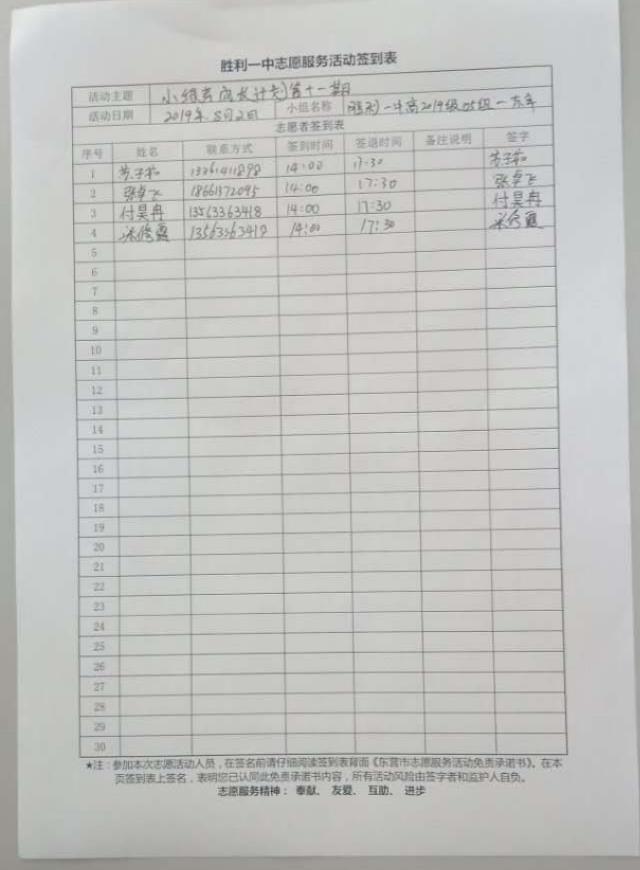 胜利一中志愿服务活动签到表
活动主题 小 成长计划第十一期
活动日期 2019年8月2日 小组名称 胜利一中高2019级05组一
志愿者签到表
序号 姓名 联系方式 签到时间 签退时间 备注说明 签字
1 14:00 17:30
2 张卓飞 18661372095 14:00 17:30 张卓飞
3 付昊冉 13563363418 14:00 17:30 付昊冉
4 14:00 17:30
5
6
7
8
9
10
11
12
13
14
15
16
17
18
19
20
21
22
23
24
25
26
27
28
29
30
★注：参加本次志愿活动人员，在签名前请仔细阅读签到表背面《东营市志愿服务活动免责承诺书》。在本
页签到表上签名，表明您已认同此免责承诺书内容，所有活动风险由签字者和监护人自负。
志愿服务精神： 奉献、 友爱、 互助、 进步